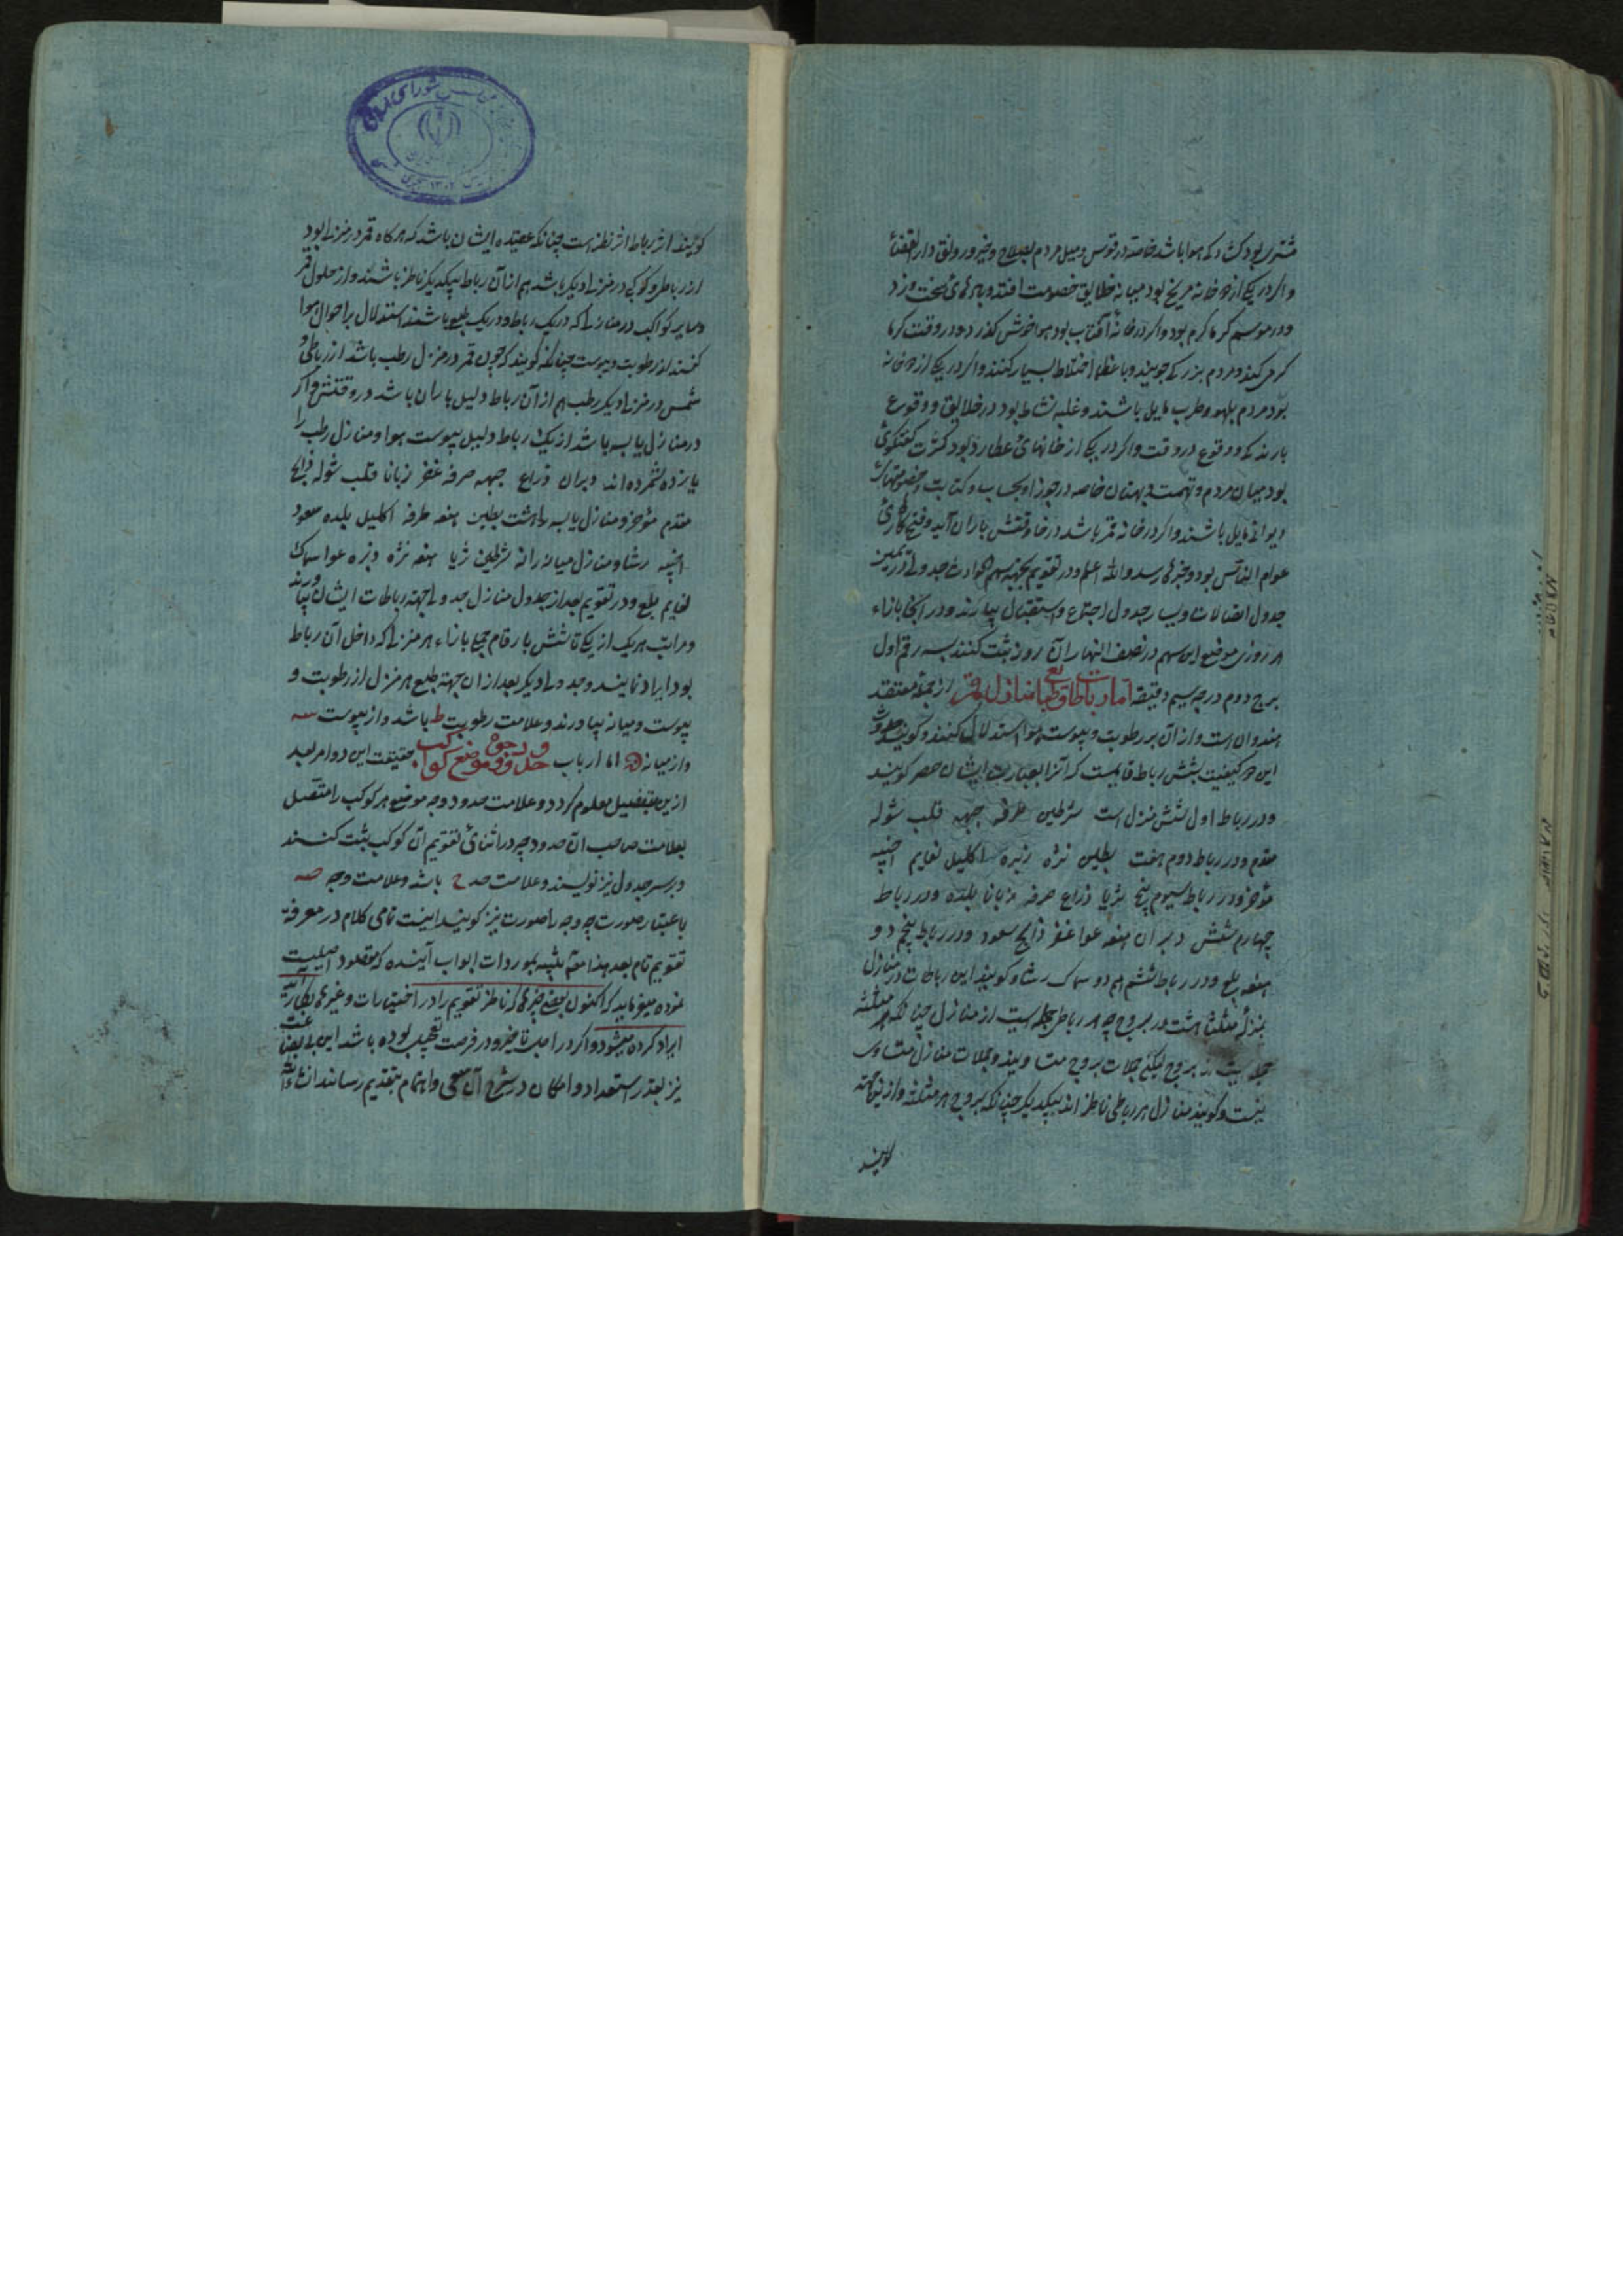 مشتری بود کشادکی هوا باشد خاصه در قوس و میل مردم بصلاح و خیر و رونق دار القضا
و اگر در یکی از دو خانه مریخ بود میانه خلایق خصومت افتد و بادهای سخت وزد
و در موسم گرما گرم بود و اگر در خانه آفتاب بود هوا خوش گذرد و در وقت گرما
گرمی کند و مردم بزرگی جویند و با عظما اختلاط بسیار کنند و اگر در یکی از دو خانه
بود مردم بلهو و طرب مایل باشند و غلبه نشاط بود در خلایق و وقوع
بارندکی و وقوع در وقت و اگر در یکی از خانهای عطارد بود کثرت گفتگوی
بود میان مردم و تهمت و بهتان خاصه در جوزا و بحساب و کتابت و
دیوانی مایل باشند و اگر در خانه قمر باشد در خاء وقتش باران آید و
عوام الناس بود و خبرها رسد والله اعلم و در تقویم بجهة سهم الحوادث جدولی در یمین
جدول اتصالات و یسار جدول اجتماع و استقبال بیارند و در آنجا بازاء
هر روزی موضع این سهم در نصف النهار آن روز ثبت کنند بسه رقم اول
برج دوم درجه سیم دقیقه اما رباطات و طبایع منازل قمر از جمله معتقد
هندوان است و از آن بر رطوبت و یبوست هوا استدلال کنند و گویند
این دو کیفیت بشش رباط قایمست که آنرا بعبارت ایشان حصر گویند
و در رباط اول شش منزل است شرطین طرفه جبهه قلب شوله
مقدم و در رباط دوم هفت بطین نثره زبره اکلیل نعایم اخبیه
مؤخر و در رباط سیوم پنج ثریا ذراع صرفه زبانا بلده و در رباط
چهارم شش دبران هقعه عوا غفر ذابح سعود و در رباط پنجم دو
هنعه بلع و در رباط ششم هم دو سماک رشا و گویند این رباطات در منازل
بمنزلۀ مثلثا هشت در بروج چه هر رباطی جمله ایست از منازل چنانکه هر مثلثه
جمله ایست از بروج لیکن جملات بروج متساویند و جملات منازل متساوی
نیست و گویند منازل هر رباطی ناظر اند بیکدیگر چنانکه بروج هر مثلثه و ازینجهة
گویند
گویند اثر رباط اثر نظر است چنانکه عقیده ایشان باشد که هرگاه قمر در منزلی بود
از رباطی و کوکبی در منزلی دیگر باشد هم از آن رباط بیکدیگر ناظر باشند و از حلول قمر
و سایر کواکب در منازلی که در یک رباط و در یک طبع باشند استدلال بر احوال هوا
کنند از رطوبت و یبوست چنانکه گویند که چون قمر در منزل رطب باشد از رباطی و
شمس در منزلی دیگر رطب هم از آن رباط دلیل باران باشد در وقتش و اگر
در منازل یابسه باشد از یک رباط دلیل یبوست هوا و منازل رطب را
یازده شمرده اند دبران ذراع جبهه صرفه غفر زبانا قلب شوله ذابح
مقدم مؤخر و منازل یابسه را هشت بطین هنعه طرفه اکلیل بلده سعود
اخبیه رشا و منازل میانه را نه شرطین ثریا هقعه نثره زبره عوا سماک
نعایم بلع و در تقویم بعد از جدول منازل جدولی بجهة رباطات ایشان بیارند
و مراتب هر یک از یکی تا شش بارقام جمل بازاء هر منزلی که داخل آن رباط
بود ایراد نمایند و جدولی دیگر بعد از آن بجهة طبع هر منزل از رطوبت و
یبوست و میانه بیاورند و علامت رطوبت ط باشد و از یبوست سه
و از میانه ن اما ارباب حدود و وجوه مواضع کواکب حقیقت این دو امر بعد
ازین بتفصیل معلوم گردد و علامت حدود و وجه موضع هر کوکب را متصل
بعلامت صاحب آن حد و وجه در اثنای تقویم آن کوکب ثبت کنند
و بر سر جدول نیز نویسند و علامت حد ح باشد و علامت وجه صه
باعتبار صورت چه وجه را صورت نیز گویند اینست تمامی کلام در معرفة
تقویم تام بعد هذا مقبه بموردات ابواب آینده که مقصود اصلیست
نموده میفرماید که اکنون بعضی چیزها که ناظر تقویم را در اختیارات و غیرها بکار آید
ایراد کرده میشود و اگر در اجل تاخیر و در فرصت بوده باشد این
نیز بقدر استعداد و امکان در شرح آن سعی و اهتمام بتقدیم رساند انشاءالله